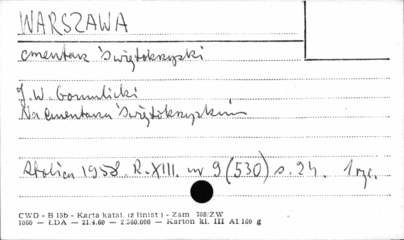 WARSZAWA
cmentarz Świętokrzyski
J. W. Gomulicki
Na cmentarzu Świętokrzyskim
Stolica 1958. R. XIII. nr 9 (530) s. 24. 1 ryc.
CWD - B 15b - Karta katal. (z liniat) - Zam 788/ZW
1060 — ŁDA — 21.4.60 — 2 560.000 — Karton kl. III A1 180 g